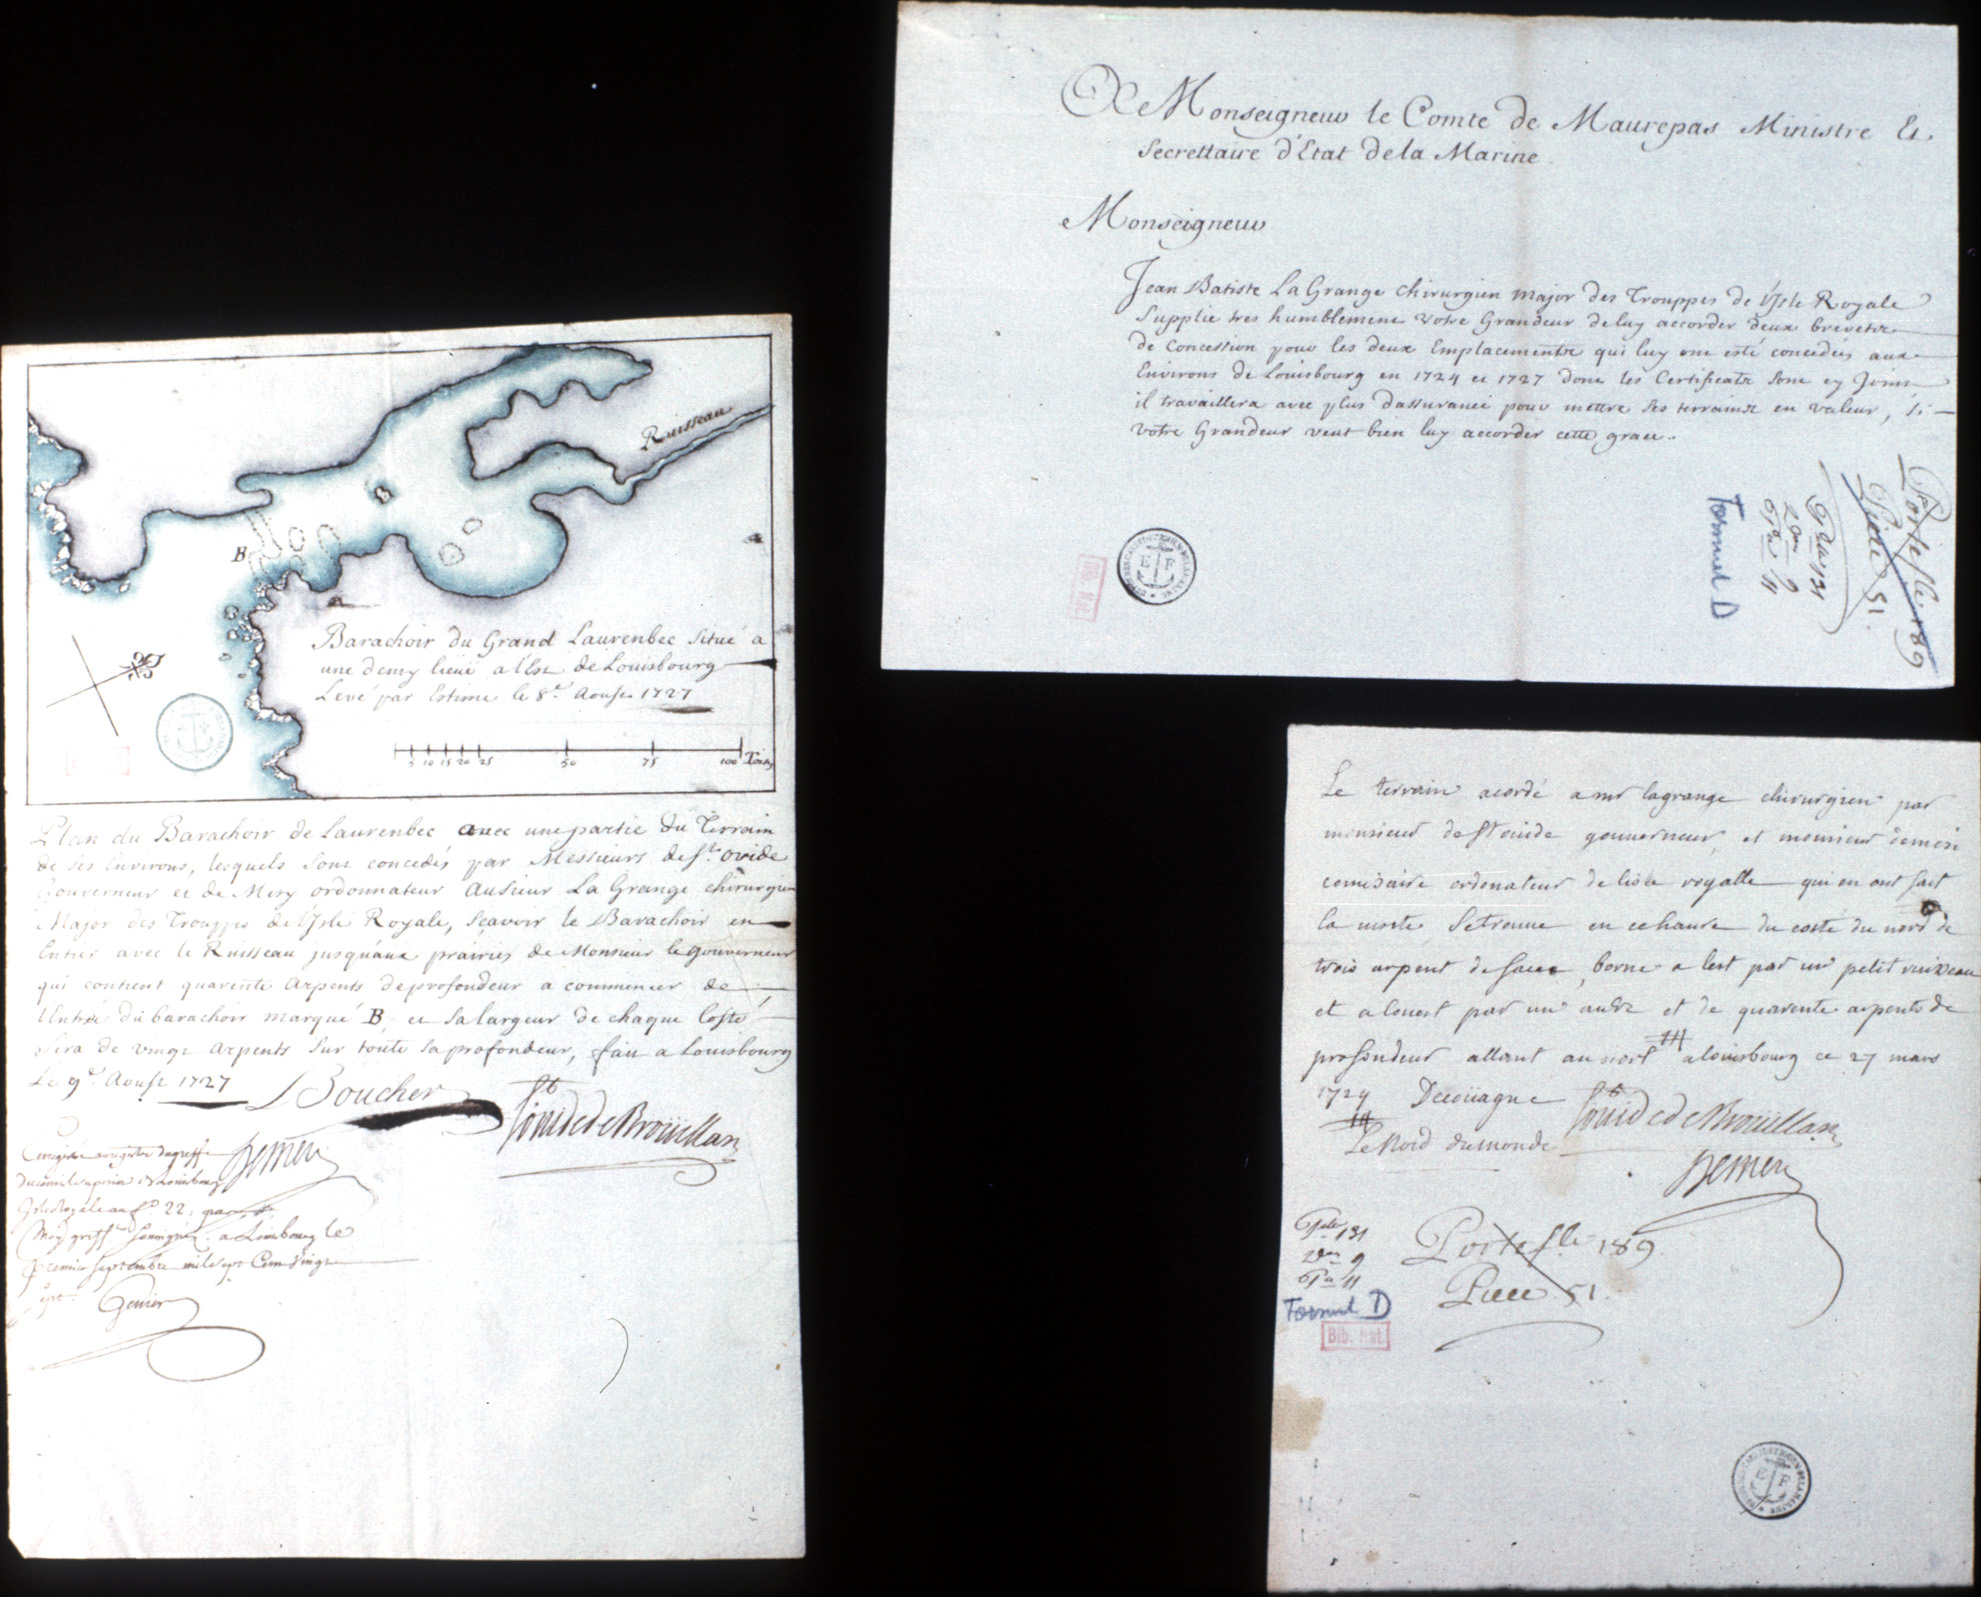 Ruisseau
B
Barachoir du Grand Laurenbec Situé a
une demy lieüe a l'Est de Louisbourg
Levé par Estime le 8e. Aoust 1727
5 10 15 20 25 50 75 100 Toises
Plan du Barachoir de Laurenbec avec une partie du Terrain
de ses Environs, lesquels sont concedés par Messieurs de St. ovide
Gouverneur et de Mesy ordonnateur Au Sieur La Grange chirurgien
Major des Trouppes de l'Jsle Royale, Scavoir le Barachoir en
Entier avec le Ruisseau jusquáux prairies de Monsieur le gouverneur
qui contient quarente Arpents de profondeur a commencer de
l'Entrée du barachoir marqué B, et Sa largeur de chaque Costé
Sera de vingt Arpents Sur toute Sa profondeur, fait a Louisbourg
Le 9e. Aoust 1727 Boucher
St ovide de Broüillan
Enregistré au registre du greffe Demesy
du conseil superieur de Louisbourg
Jsle Royale au fo. 22, par
Moy greffier Soussigné a Louisbourg le
premier septembre mil sept Cent vingt
sept.
A Monseigneur le Comte de Maurepas Ministre Et
Secrettaire d'Etat de la Marine
Monseigneur
Jean Batiste La Grange Chirurgien Major des Trouppes de l'Jsle Royale
Supplie tres humblement Votre Grandeur de luy accorder deux brevets
de Concession pour les deux Emplacements qui luy ont esté concedées aux
Environs de Louisbourg en 1724 et 1727 dont les Certificats sont cy Joints
il travaillera avec plus dassurance pour mettre ses terrains en valeur, Si
votre Grandeur veut bien luy accorder cette grace.
Portefle. 189
Piece 51.
Pelle 131
2on 9
Pce 11
D
Bib. Nat.
E F
Le terrain acordé a mr lagrange chirurgien par
monsieur de St ovide gouverneur, et monsieur demesi
comisaire ordonateur de lisle royalle qui en ont fait
la visite Setrouve en cehavre du costé du nord de
trois arpent de face, borné a lest par un petit ruisseau
et alouest par un autre et de quarente arpents de
profondeur allant au nort a louisbourg ce 27 mars
1724 Decoüagne St ovide de Broüillan
Le Nord du monde
Demesy
Pelle 131
2on 9
Pce 11
D
Portefle 189
Piece 51.
Bib. Nat.
E F